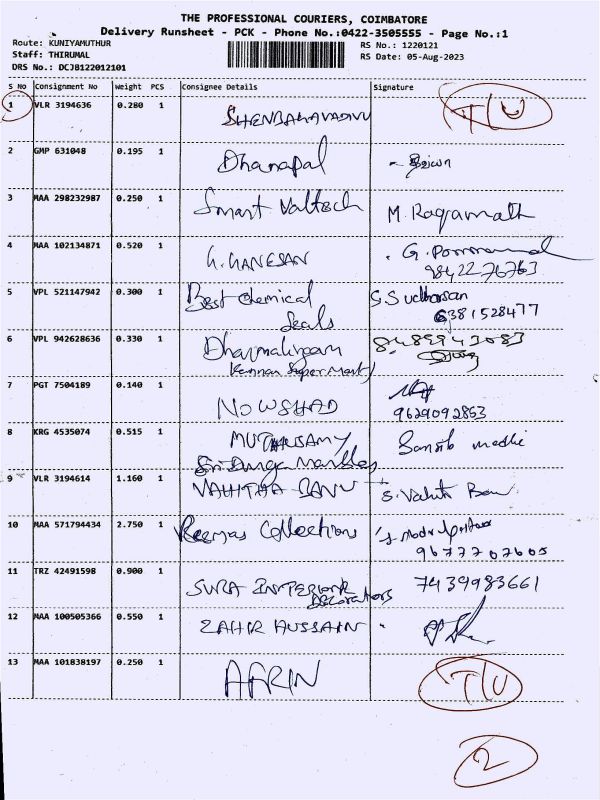 THE PROFESSIONAL COURIERS, COIMBATORE
Delivery Runsheet - PCK - Phone No.:0422-3505555 - Page No.:1
Route: KUNIYAMUTHUR RS No.: 1220121
Staff: THIRUMAL RS Date: 05-Aug-2023
DRS No.: DCJB122012101
S No Consignment No Weight PCS Consignee Details Signature
1 VLR 3194636 0.280 1 T/U
2 GMP 631048 0.195 1 Dhanapal
3 MAA 298232987 0.250 1 Smart M. Ragunath
4 MAA 102134871 0.520 1 G. GANESAN G.
98422 76763
5 VPL 521147942 0.300 1 Best Chemical S. Sudharsan
Seals 6381528477
6 VPL 942628636 0.330 1 Dharmalingam 8489943083
Kannan Super Mart
7 PGT 7504189 0.140 1 NOWSHAD
9629092853
8 KRG 4535074 0.515 1 MUTHUSAMY
Sri Durga Marbles
9 VLR 3194614 1.160 1 VAHITHA BANU S.
10 MAA 571794434 2.750 1 Collections
9677707605
11 TRZ 42491598 0.900 1 SURA INTERIOR 7439983661
Decorators
12 MAA 100505366 0.550 1 ZAHIR HUSSAIN
13 MAA 101838197 0.250 1 AFRIN T/U
2